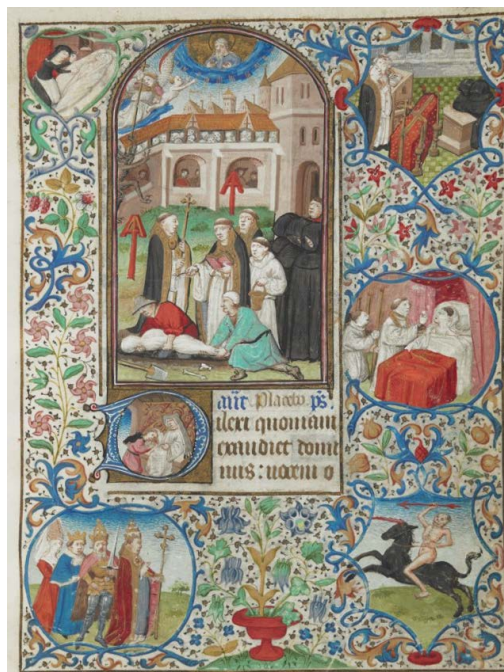 añt. Placebo. ps̄.
Dilexi quoniam
exaudiet domi
nus: uocem o